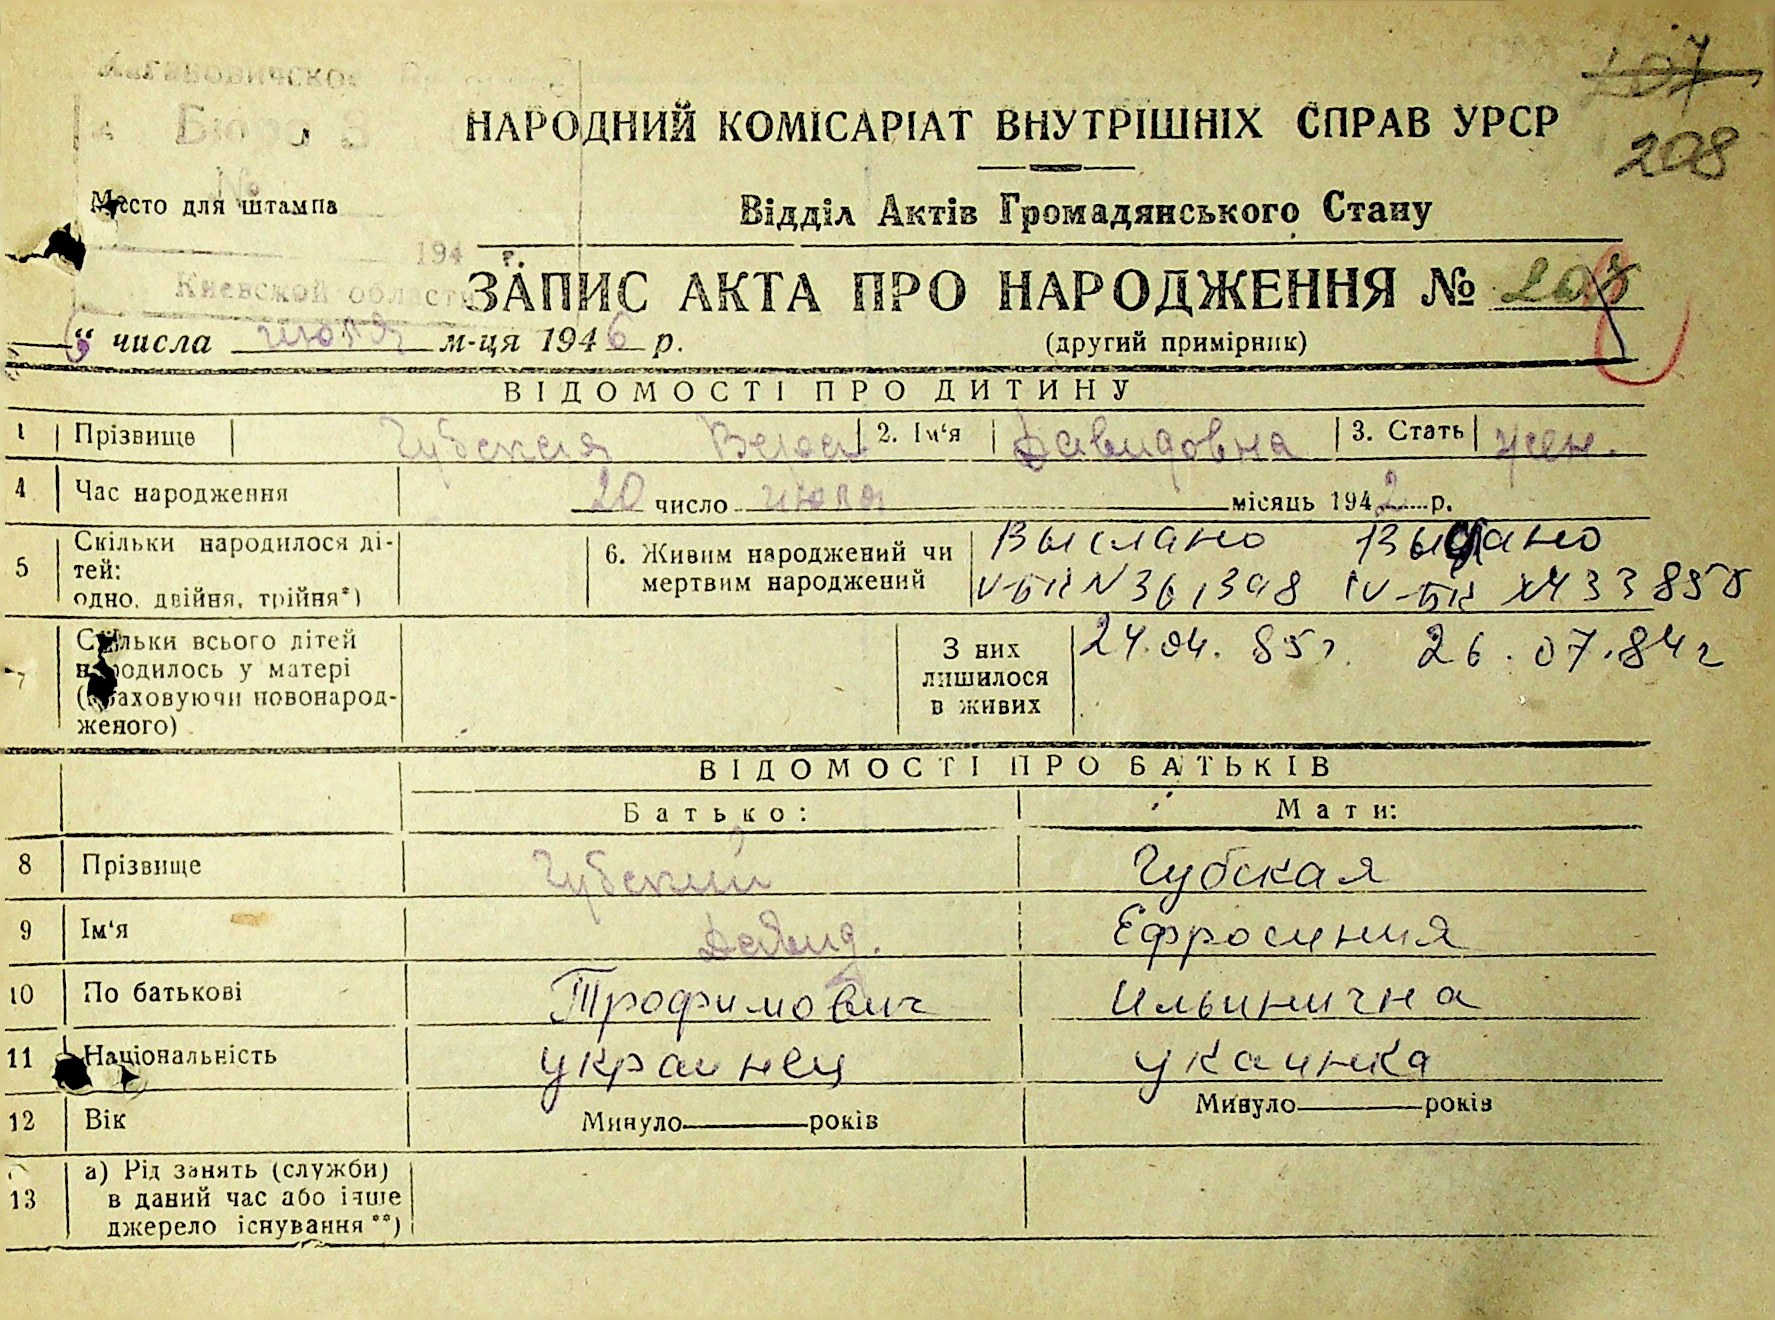 207
208
НАРОДНИЙ КОМІСАРІАТ ВНУТРІШНІХ СПРАВ УРСР
Место для штампа
Відділ Актів Громадянського Стану
194 г.
Киевской области
ЗАПИС АКТА ПРО НАРОДЖЕННЯ № 208
числа июля м-ця 1946 р.
(другий примірник)
ВІДОМОСТІ ПРО ДИТИНУ
1 Прізвище Губская Вера 2. Ім‘я Давидовна 3. Стать жен.
4 Час народження 20 число июля місяць 1942 р.
5 Скільки народилося ді-
тей:
одно, двійня, трійня*)
6. Живим народжений чи
мертвим народжений
Выслано Выдано
V-БК N 361398 IV-БК N 433858
7 Скільки всього дітей
народилось у матері
(враховуючи новонарод-
женого)
З них
лишилося
в живих
24.04.85г. 26.07.84г
ВІДОМОСТІ ПРО БАТЬКІВ
Батько: Мати:
8 Прізвище Губский Губская
9 Ім‘я Давид. Ефросиния
10 По батькові Трофимович Ильинична
11 Національність украинец укаинка
12 Вік Минуло років Минуло років
13 а) Рід занять (служби)
в даний час або інше
джерело існування**)